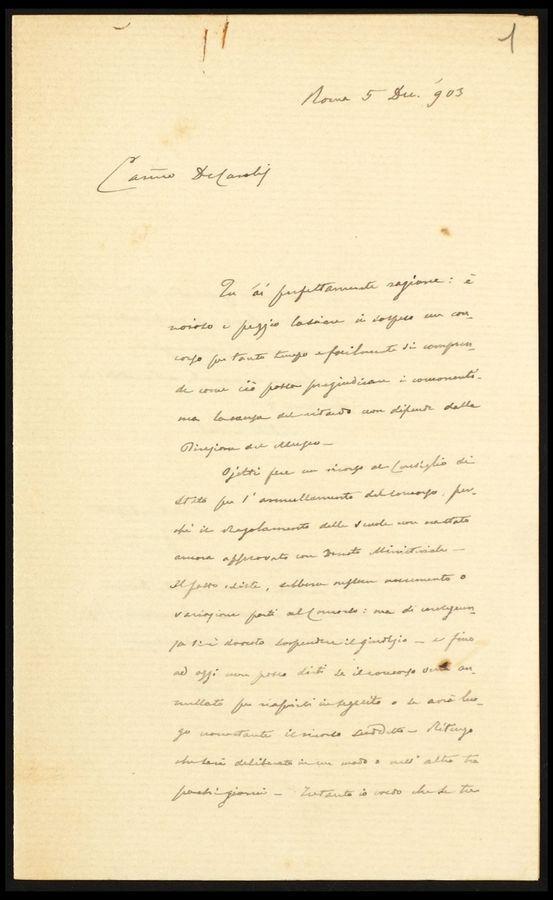 1
Roma 5 Dic. '903
Carissimo De Carolis
Tu ài perfettamente ragione: è
noioso e peggio lasciare in sospeso un con-
corso per tanto tempo e facilmente si compren-
de come ciò possa pregiudicare i concorrenti.
ma la causa del ritardo non dipende dalla
Direzione del Museo —
Ojetti fece un ricorso al Consiglio di
Stato per l'annullamento del concorso, per-
chè il Regolamento delle Scuole non
ancora approvato con Decreto Ministeriale —
Il fatto esiste, sebbene nessun nocumento o
variazione porti al Concorso: ma di conseguen-
za si è dovuto sospendere il giudizio — e fino
ad oggi non posso dirti se il concorso verrà an-
nullato per riaprirsi in seguito o se avrà luo-
go nonostante il ricorso suddetto — Ritengo
che sarà deliberato in un modo o nell'altro tra
pochi giorni — Intanto io credo che se tu